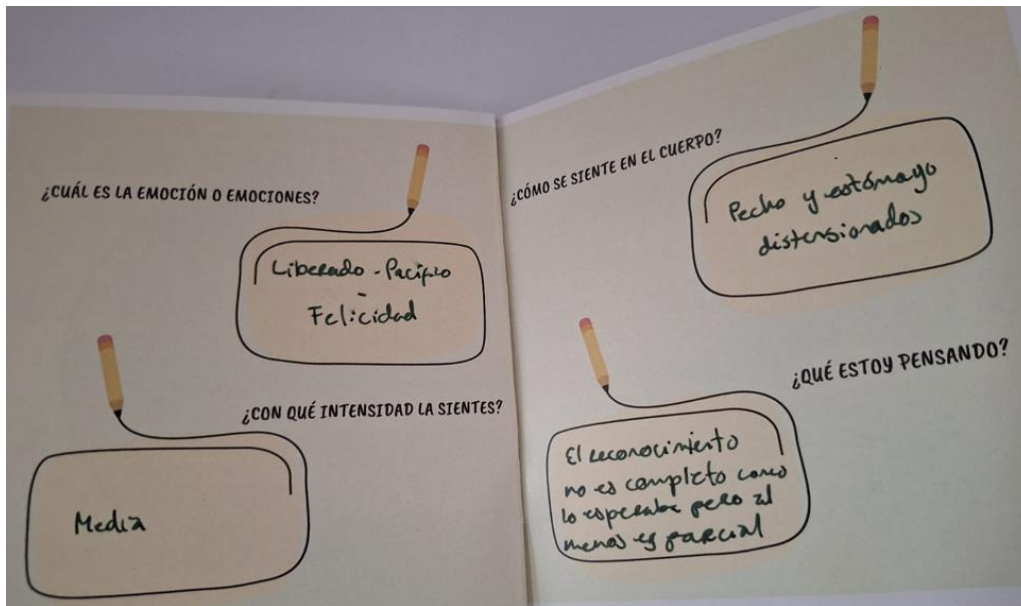 ¿CUÁL ES LA EMOCIÓN O EMOCIONES?
Liberado - Pacífico
-
Felicidad
¿CON QUÉ INTENSIDAD LA SIENTES?
Media
¿CÓMO SE SIENTE EN EL CUERPO?
Pecho y estómago
distensionados
¿QUÉ ESTOY PENSANDO?
El reconocimiento
no es completo como
lo esperaba pero al
menos es parcial